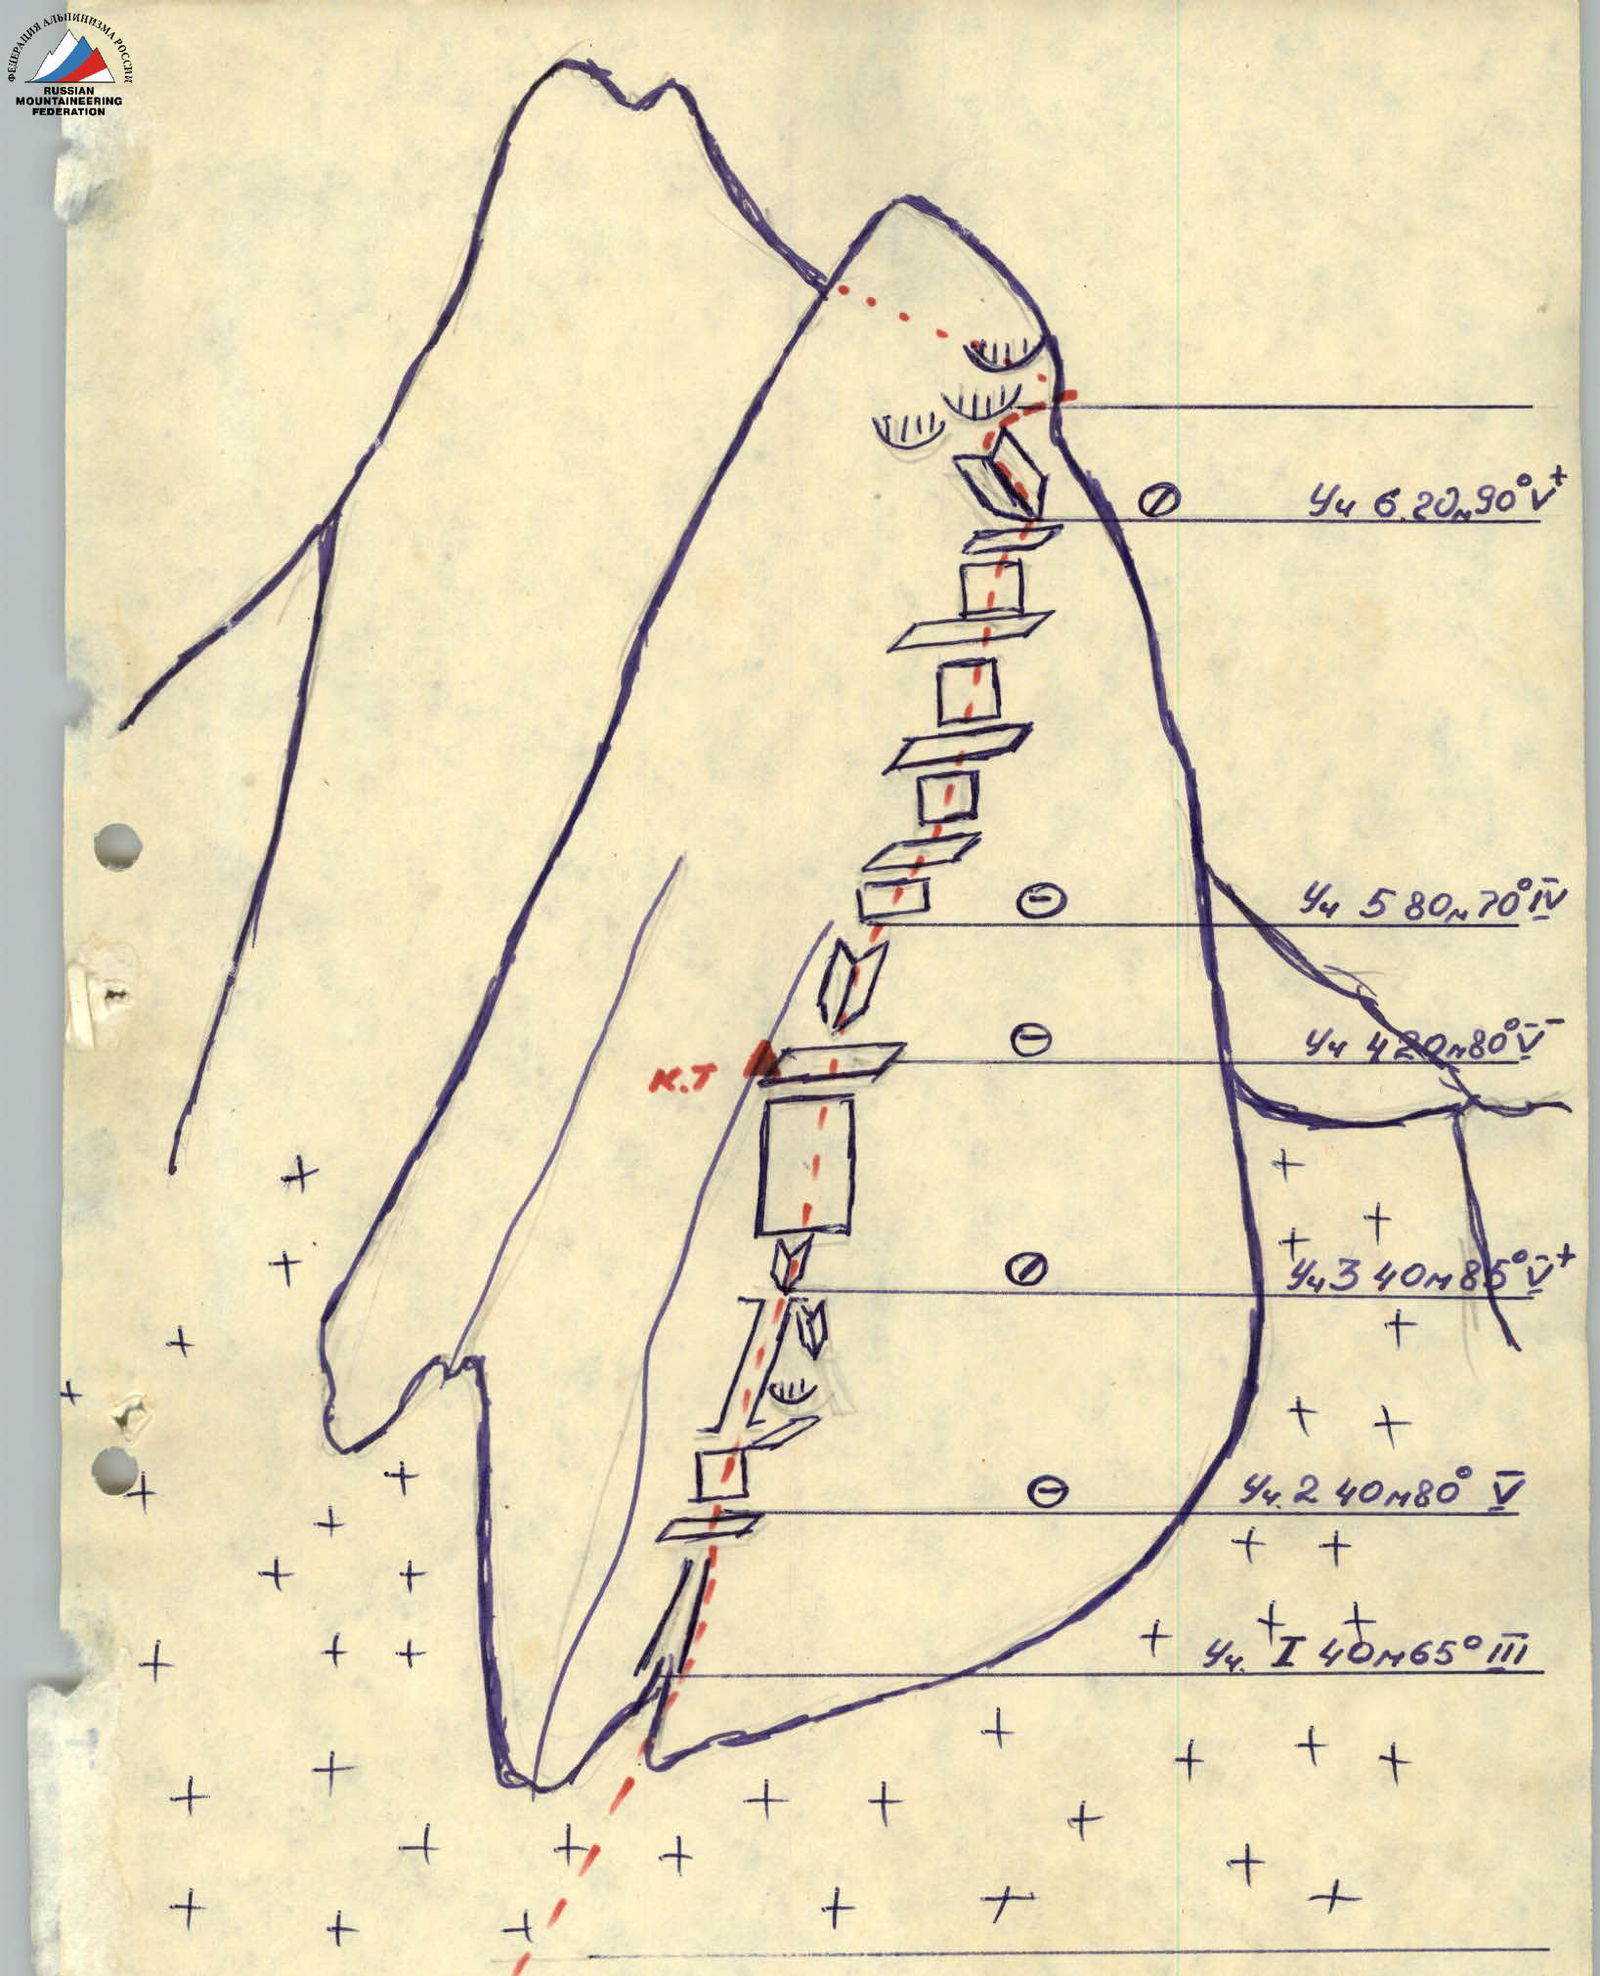 ФЕДЕРАЦИЯ АЛЬПИНИЗМА РОССИИ
RUSSIAN
MOUNTAINEERING
FEDERATION
Уч 6.20м90°V+
Уч 5 80м70°IV
Уч 4 20м80°V-
К.Т
Уч3 40м85°V+
Уч.2 40м80° V
Уч. I 40м65° III